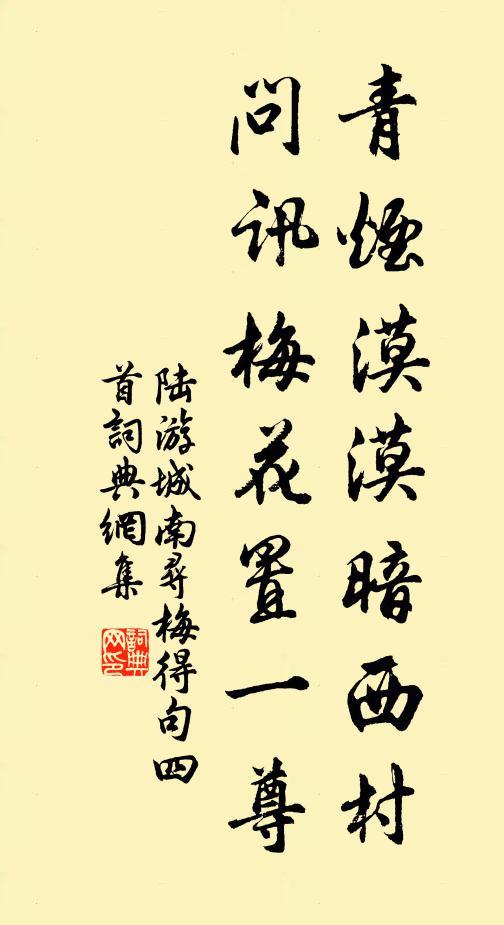 青煙漠漠暗西村
問訊梅花置一尊
陆游城南尋梅得句四
首詞典網集
詞典网印